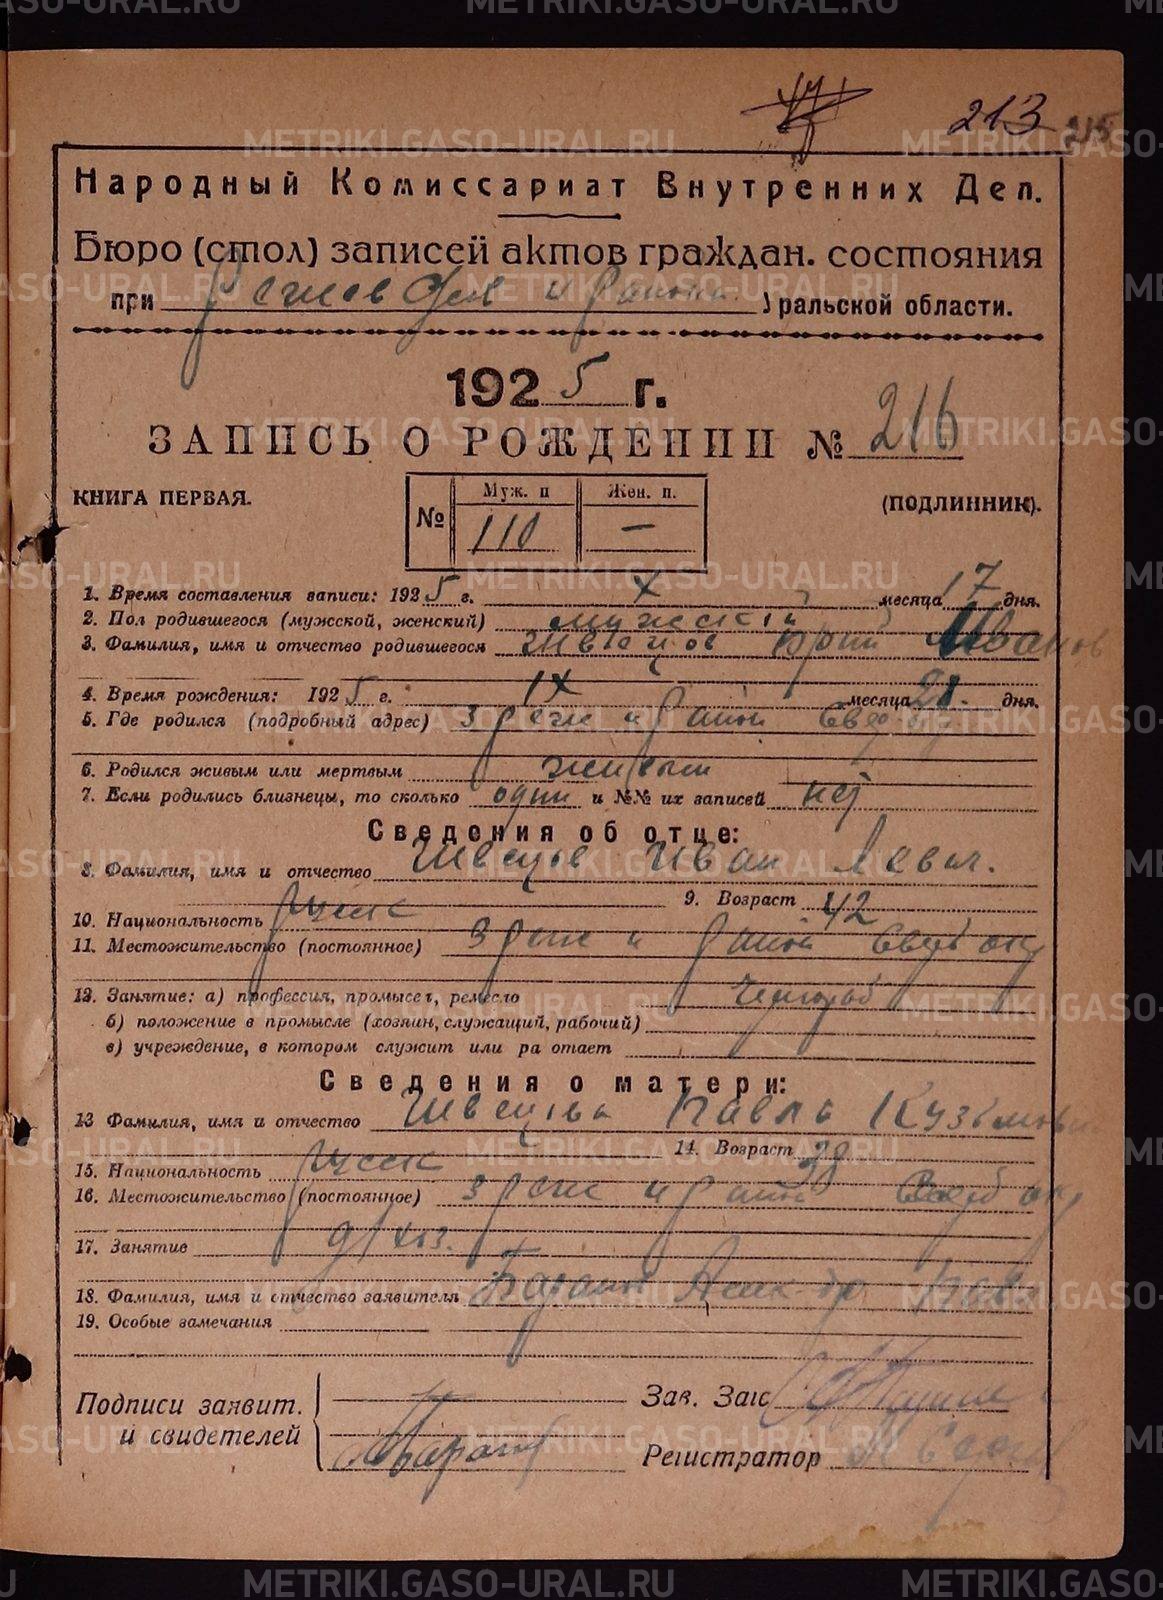 213 215
Народный Комиссариат Внутренних Дел.
Бюро (стол) записей актов граждан. состояния
при и района Уральской области.
1925 г.
ЗАПИСЬ О РОЖДЕНИИ № 216
КНИГА ПЕРВАЯ. (ПОДЛИННИК).
№ Муж. п Жен. п.
110 —
1. Время составления записи: 1925 г. X месяца 17 дня.
2. Пол родившегося (мужсской, женский) мужской
3. Фамилия, имя и отчество родившегося Швецов Юрий Иванов
4. Время рождения: 1925 г. IX месяца 21. дня.
5. Где родился (подробный адрес) З Реж и район Свер
6. Родился живым или мертвым живым
7. Если родились близнецы, то сколько один и №№ их записей нет
Сведения об отце:
8. Фамилия, имя и отчество Швецов Иван
9. Возраст 42
10. Национальность Русск
11. Местожительство (постоянное) З Реж и район Сверд окр
12. Занятие: а) профессия, промысел, ремесло Чернораб
б) положение в промысле (хозяин, служащий, рабочий)
в) учреждение, в котором служит или ра отает
Сведения о матери:
13 Фамилия, имя и отчество Швецова Павла Кузьмовн
14. Возраст 38
15. Национальность Русск
16. Местожительство (постоянное) З Реж и район Сверд окр
17. Занятие д/хоз.
18. Фамилия, имя и отчество заявителя
19. Особые замечания
Подписи заявит. и свидетелей
Зав. Загс
Регистратор
METRIKI.GASO-URAL.RU